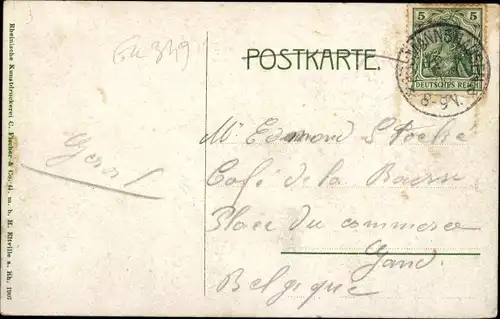 Rheinische Kunstdruckerei C. Fischer & Co. G. m. b. H. Eltville a. Rh. 1907
POSTKARTE.
5 5
DEUTSCHES REICH
8-9V.
Mr Edmond
Café de la Bourse
Place du commerce
Gand
Belgique